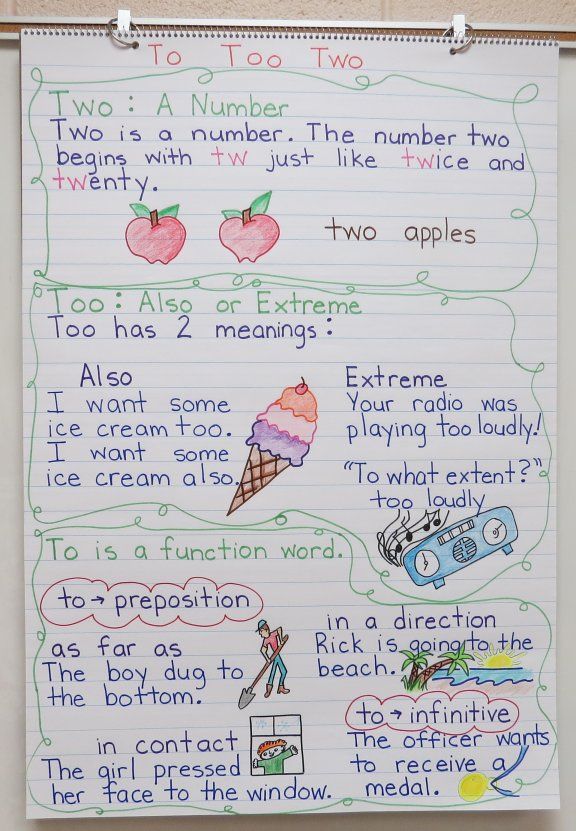 To Too Two
Two : A Number
Two is a number. The number two
begins with tw just like twice and
twenty.
two apples
Too : Also or Extreme
Too has 2 meanings :
Also
I want some
ice cream too.
I want some
ice cream also.
Extreme
Your radio was
playing too loudly!
"To what extent?"
too loudly
To is a function word.
to → preposition
as far as
The boy dug to
the bottom.
in a direction
Rick is going to the
beach.
in contact
The girl pressed
her face to the window.
to → infinitive
The officer wants
to receive a
medal.